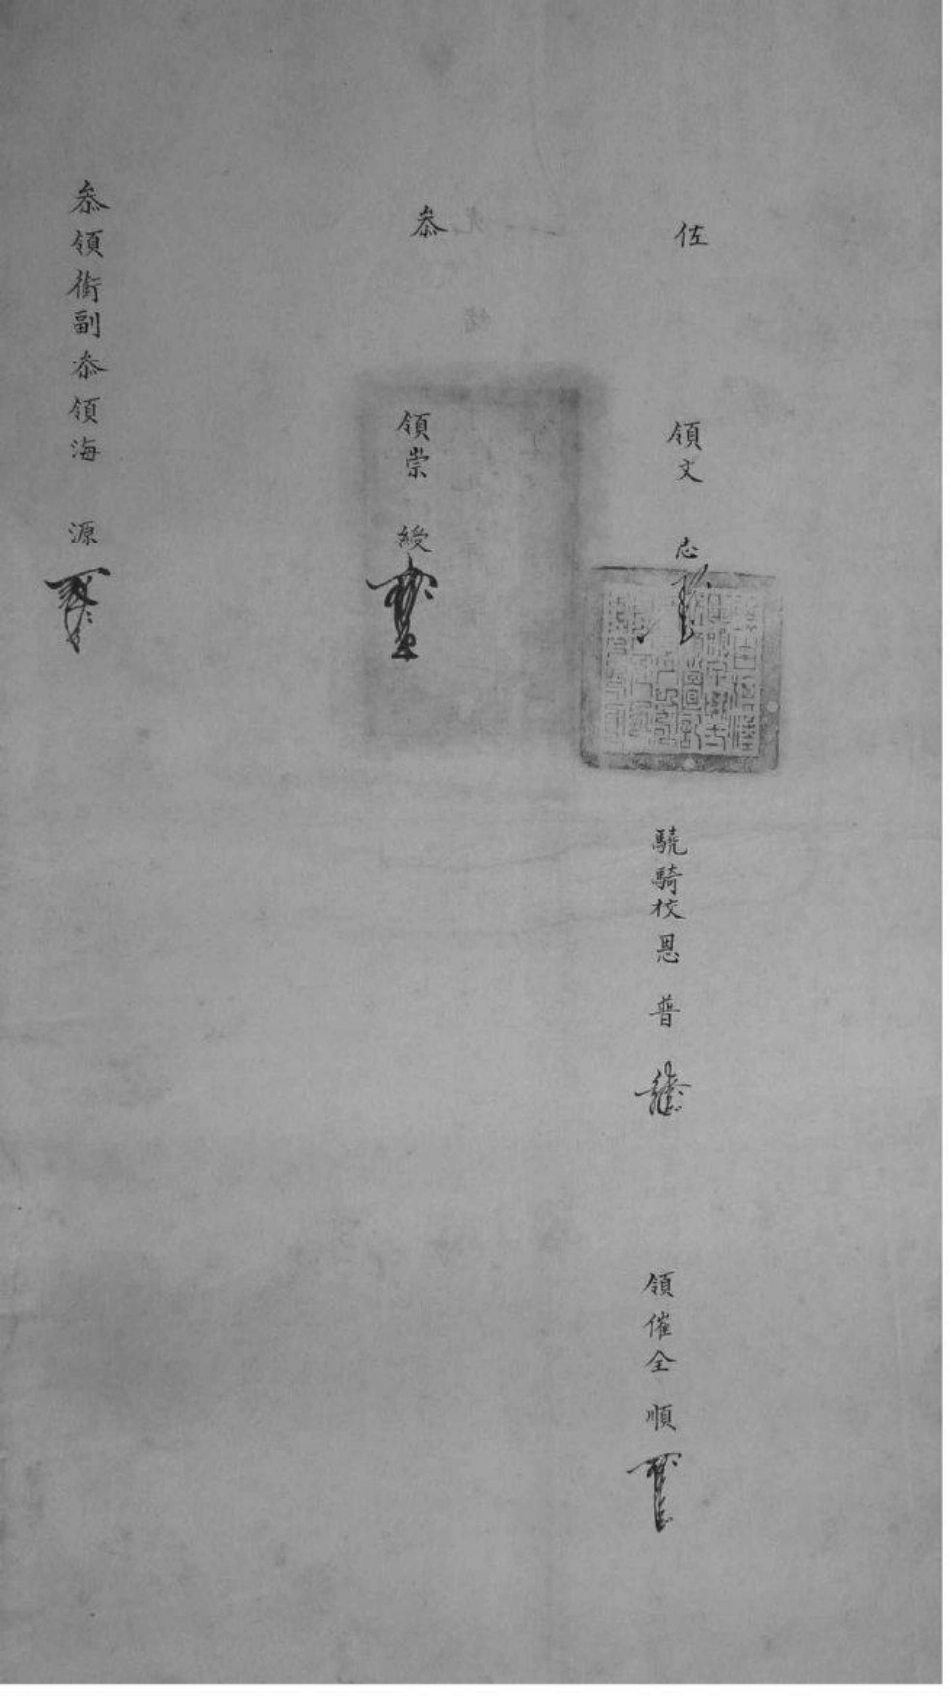 佐領文志
驍騎校恩普
領催全順
叅領崇綬
叅領銜副叅領海源